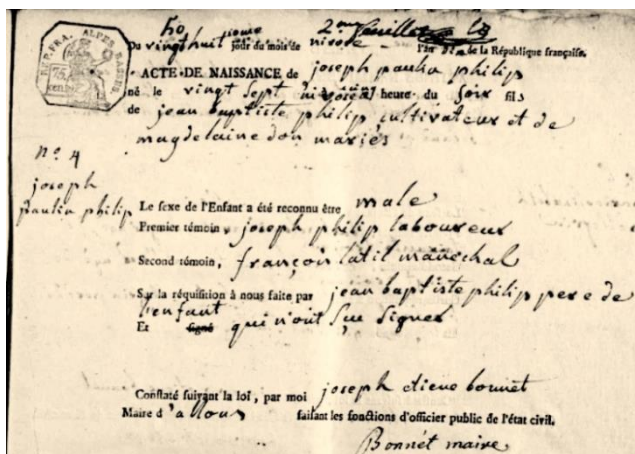 2me feuillet
RÉP. FRA. ALPES BASSES.
75
cent.
Du vingt huit jour du mois de nivose l'an dix de la République française.
ACTE DE NAISSANCE de joseph paulin philip
né le vingt sept nivose à heure du soir fils
de jean baptiste philip cultivateur et de
magdelaine don mariés
no. 4
joseph
paulin philip
Le sexe de l'Enfant a été reconnu être male
Premier témoin, joseph philip laboureur
Second témoin, françois latil marechal
Sur la réquisition à nous faite par jean baptiste philip pere de
l'enfant
Et signé qui n'ont sçu signer
Constaté suivant la loi, par moi joseph bonnet
Maire d'allons faisant les fonctions d'officier public de l'état civil.
Bonnet maire